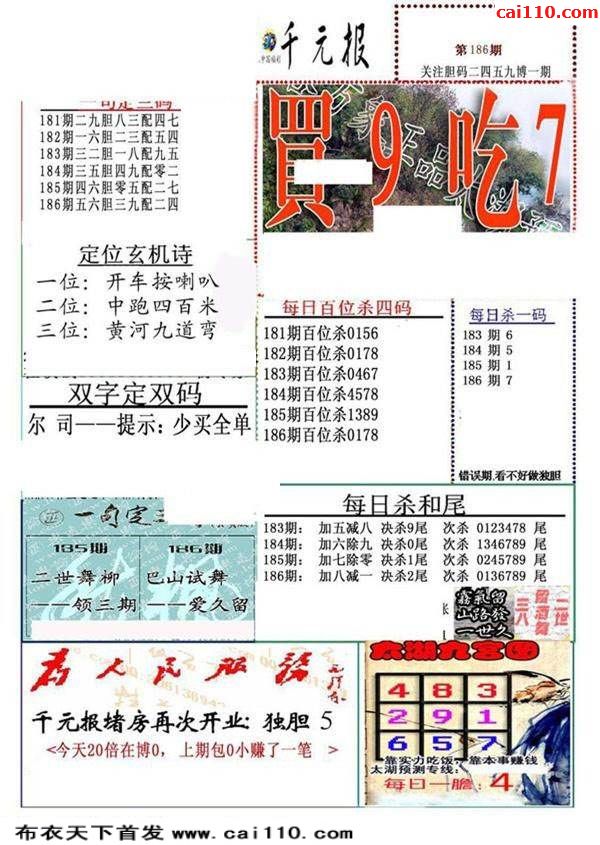 cai110.com
千元报
第186期
关注胆码二四五九博一期
一句定三码
181期二九胆八三配四七
182期一六胆二三配五四
183期三二胆一八配九五
184期三五胆四九配零二
185期四六胆零五配二七
186期五六胆三九配二四
買 9 吃 7
定位玄机诗
一位：开车按喇叭
二位：中跑四百米
三位：黄河九道弯
每日百位杀四码
181期百位杀0156
182期百位杀0178
183期百位杀0467
184期百位杀4578
185期百位杀1389
186期百位杀0178
每日杀一码
183 期 6
184 期 5
185 期 1
186 期 7
错误期，看不好做独胆
双字定双码
尔 司——提示：少买全单
一句定三
185期
二世舞柳
——领三期
186期
巴山试舞
——爱久留
每日杀和尾
183期： 加五减八 决杀9尾 次杀 0123478 尾
184期： 加六除九 决杀0尾 次杀 1346789 尾
185期： 加七除零 决杀1尾 次杀 0245789 尾
186期： 加八减一 决杀2尾 次杀 0136789 尾
为人民服务
千元报堵房再次开业：独胆 5
<今天20倍在博0，上期包0小赚了一笔 >
太湖九宫图
4 8 3
2 9 1
6 5 7
靠实力吃饭，靠本事赚钱
太湖预测专线：
每日一胆：4
布衣天下首发 www.cai110.com